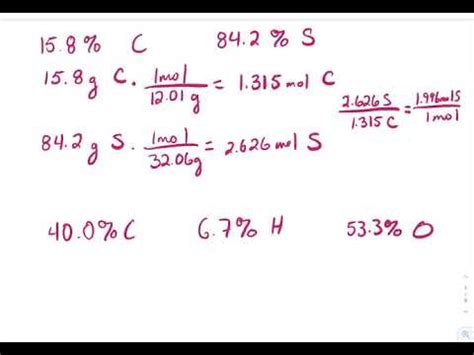 15.8% C 84.2% S
15.8g C · 1mol / 12.01g = 1.315 mol C
2.626 S / 1.315 C = 1.996 mol S / 1 mol
84.2g S · 1mol / 32.06g = 2.626 mol S
40.0% C 6.7% H 53.3% O